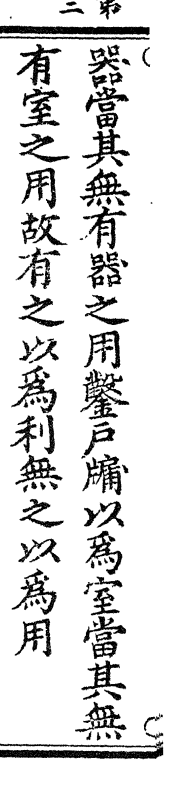 器當其無有器之用鑿戶牖以為室當其無
有室之用故有之以為利無之以為用